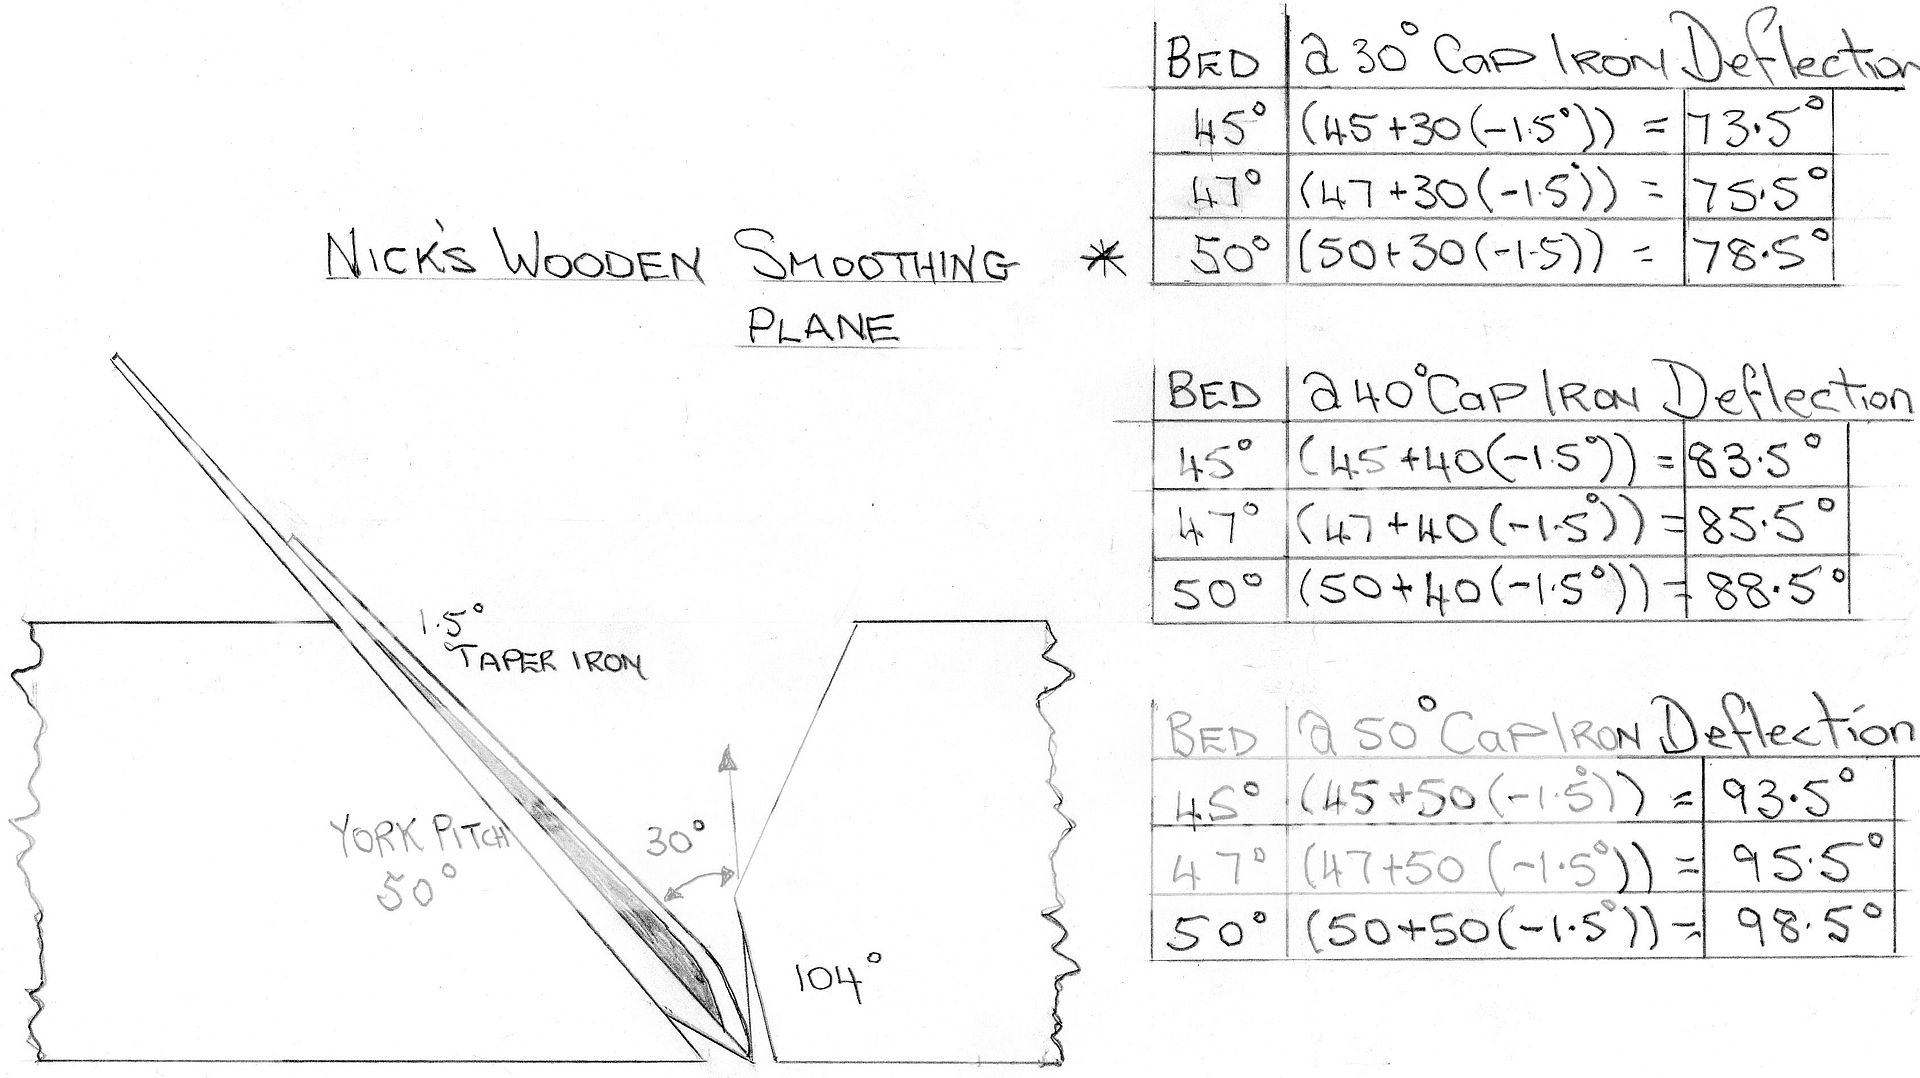 NICK'S WOODEN SMOOTHING *
PLANE
1.5°
TAPER IRON
YORK PITCH
50°
30°
104°
BED @ 30° CAP IRON Deflection
45° (45+30(-1.5°)) = 73.5°
47° (47+30(-1.5°)) = 75.5°
50° (50+30(-1.5)) = 78.5°
BED @ 40° CAP IRON Deflection
45° (45+40(-1.5°)) = 83.5°
47° (47+40(-1.5°)) = 85.5°
50° (50+40(-1.5°)) = 88.5°
BED @ 50° CAP IRON Deflection
45° (45+50(-1.5°)) = 93.5°
47° (47+50(-1.5°)) = 95.5°
50° (50+50(-1.5°)) = 98.5°